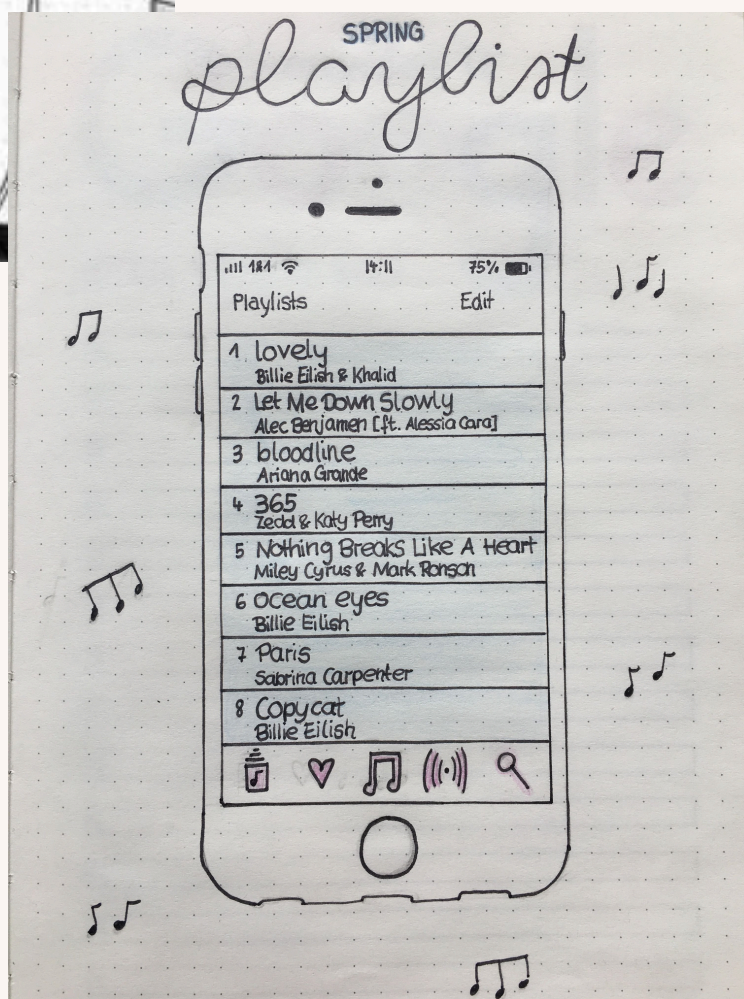 SPRING
playlist
1&1 14:11 75%
Playlists Edit
1 lovely
Billie Eilish & Khalid
2 Let Me Down Slowly
Alec Benjamen [ft. Alessia Cara]
3 bloodline
Ariana Grande
4 365
Zedd & Katy Perry
5 Nothing Breaks Like A Heart
Miley Cyrus & Mark Ronson
6 ocean eyes
Billie Eilish
7 Paris
Sabrina Carpenter
8 Copycat
Billie Eilish